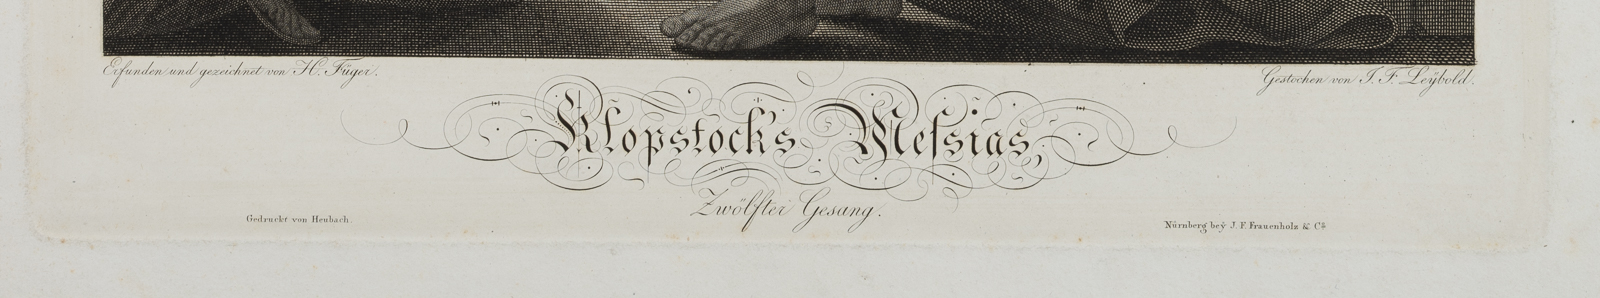 Erfunden und gezeichnet von H. Füger.
Gestochen von J. F. Leÿbold.
Klopstock's Meſsias,
Zwölfter Gesang.
Gedruckt von Heubach.
Nürnberg beÿ J. F. Frauenholz & Co.